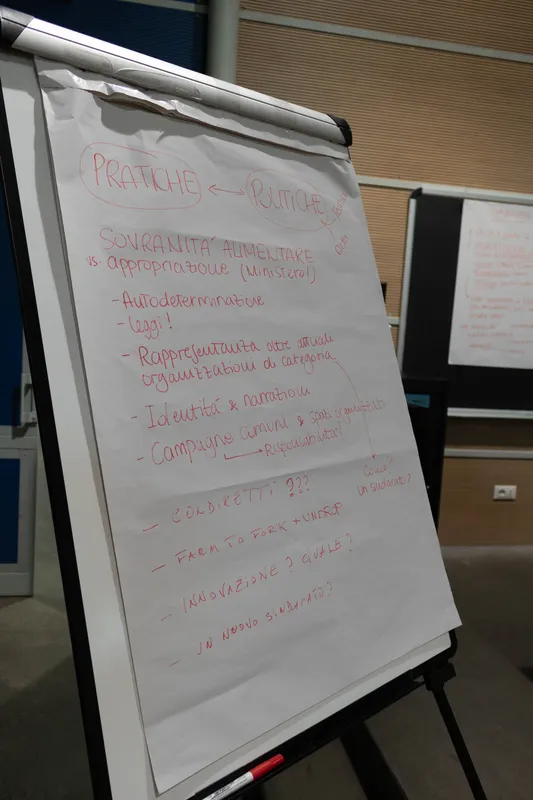 PRATICHE ↔ POLITICHE
SOVRANITÁ ALIMENTARE
vs. appropriazione (Ministero!)
- Autodeterminazione
- leggi!
- Rappresentanza oltre attuali
organizzazioni di categoria
- Identità & narrazioni
- Campagne comuni & spazi organizzati
→ Responsabilità?
Come?
un sindacato?
- COLDIRETTI ???
- FARM TO FORK + UNDROP
- INNOVAZIONE? QUALE?
- UN NUOVO SINDACATO?